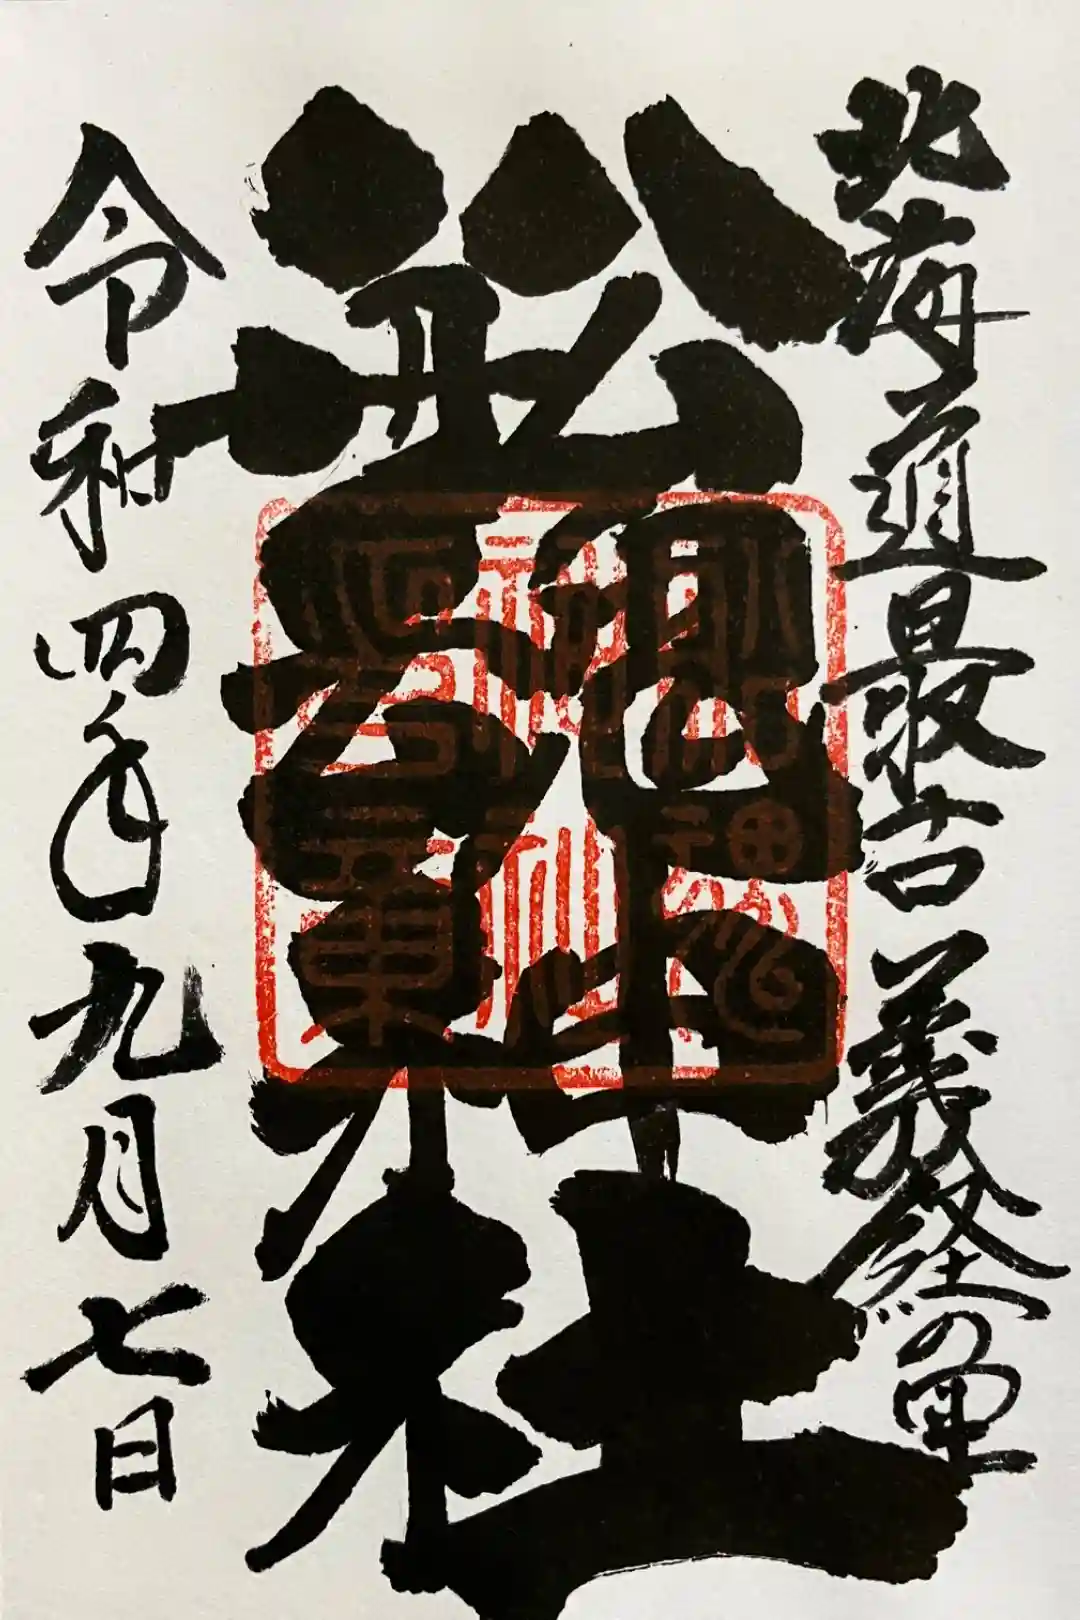 北海道最古義経の里
船魂神社
令和四年九月七日